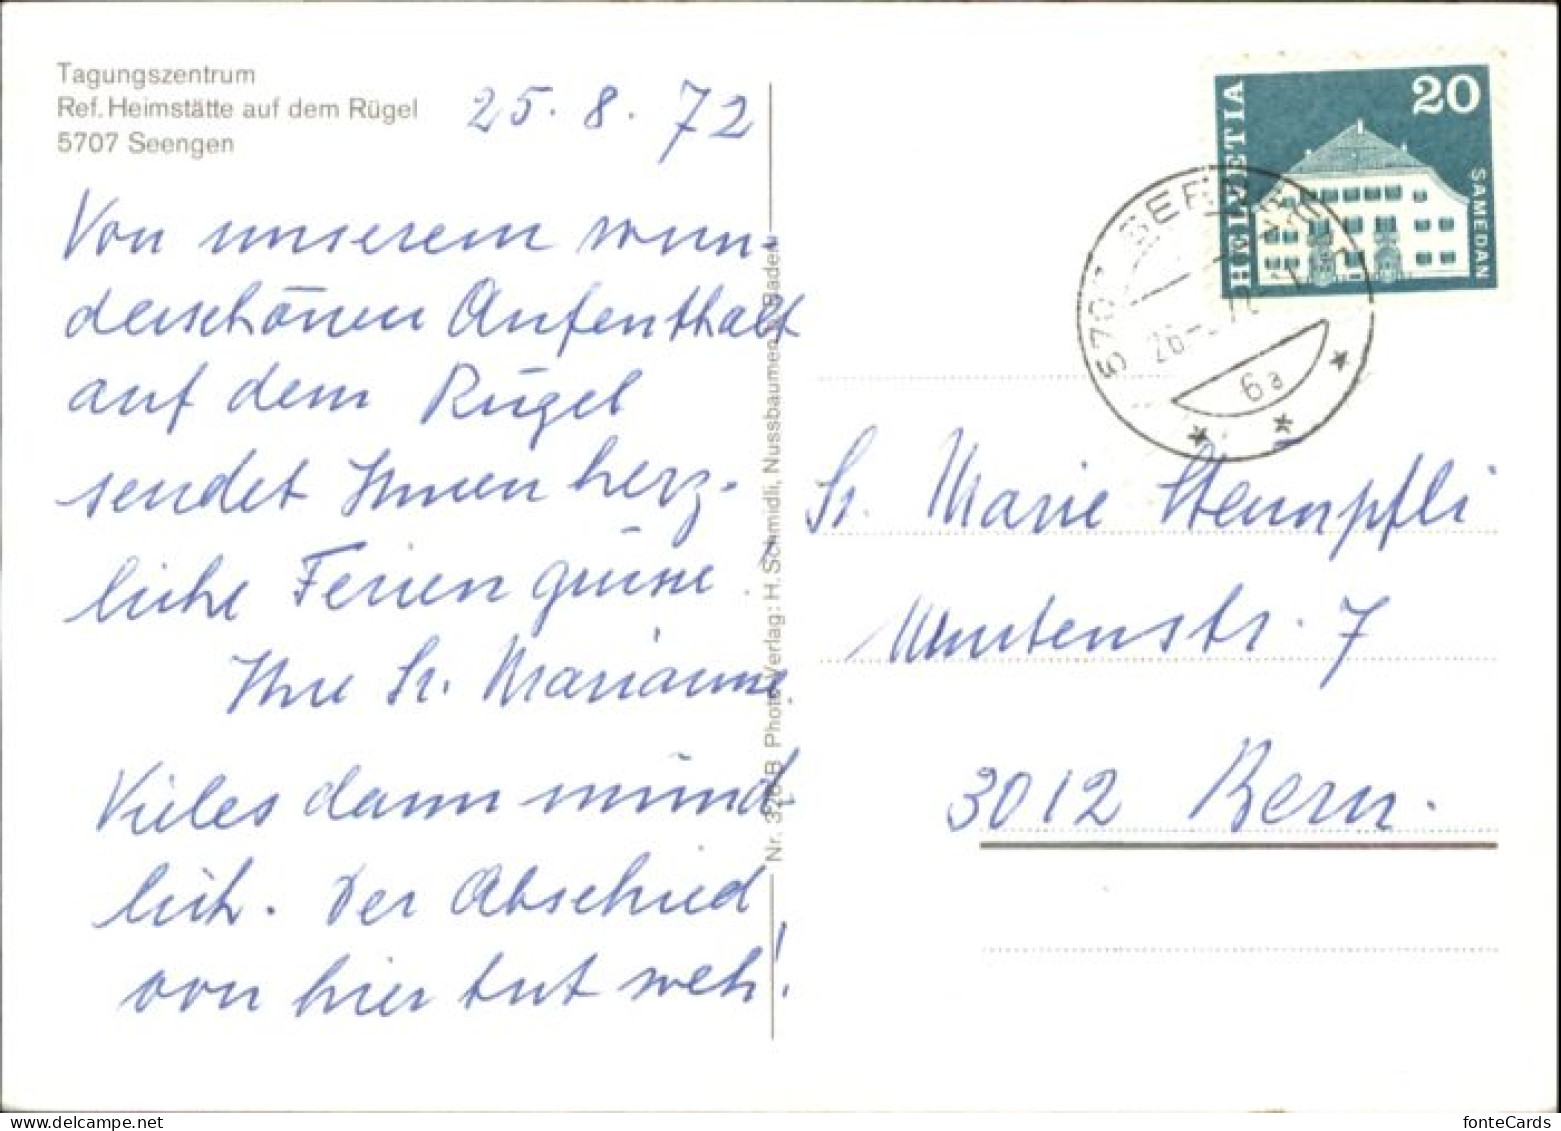 Tagungszentrum
Ref. Heimstätte auf dem Rügel
5707 Seengen
25. 8. 72
Von unserem wun-
derschönen Aufenthalt
auf dem Rügel
sendet Ihnen herz-
liche Feriengrüsse
Ihre Sr. Marianne.
Vieles dann münd-
lich. Der Abschied
von hier tut weh!
Nr. 326 B Photo-Verlag: H. Schmidli, Nussbaumen b/Baden
HELVETIA
20
SAMEDAN
5707
26
6a
Sr. Marie Stempfli
str. 7
3012 Bern.
fonteCards